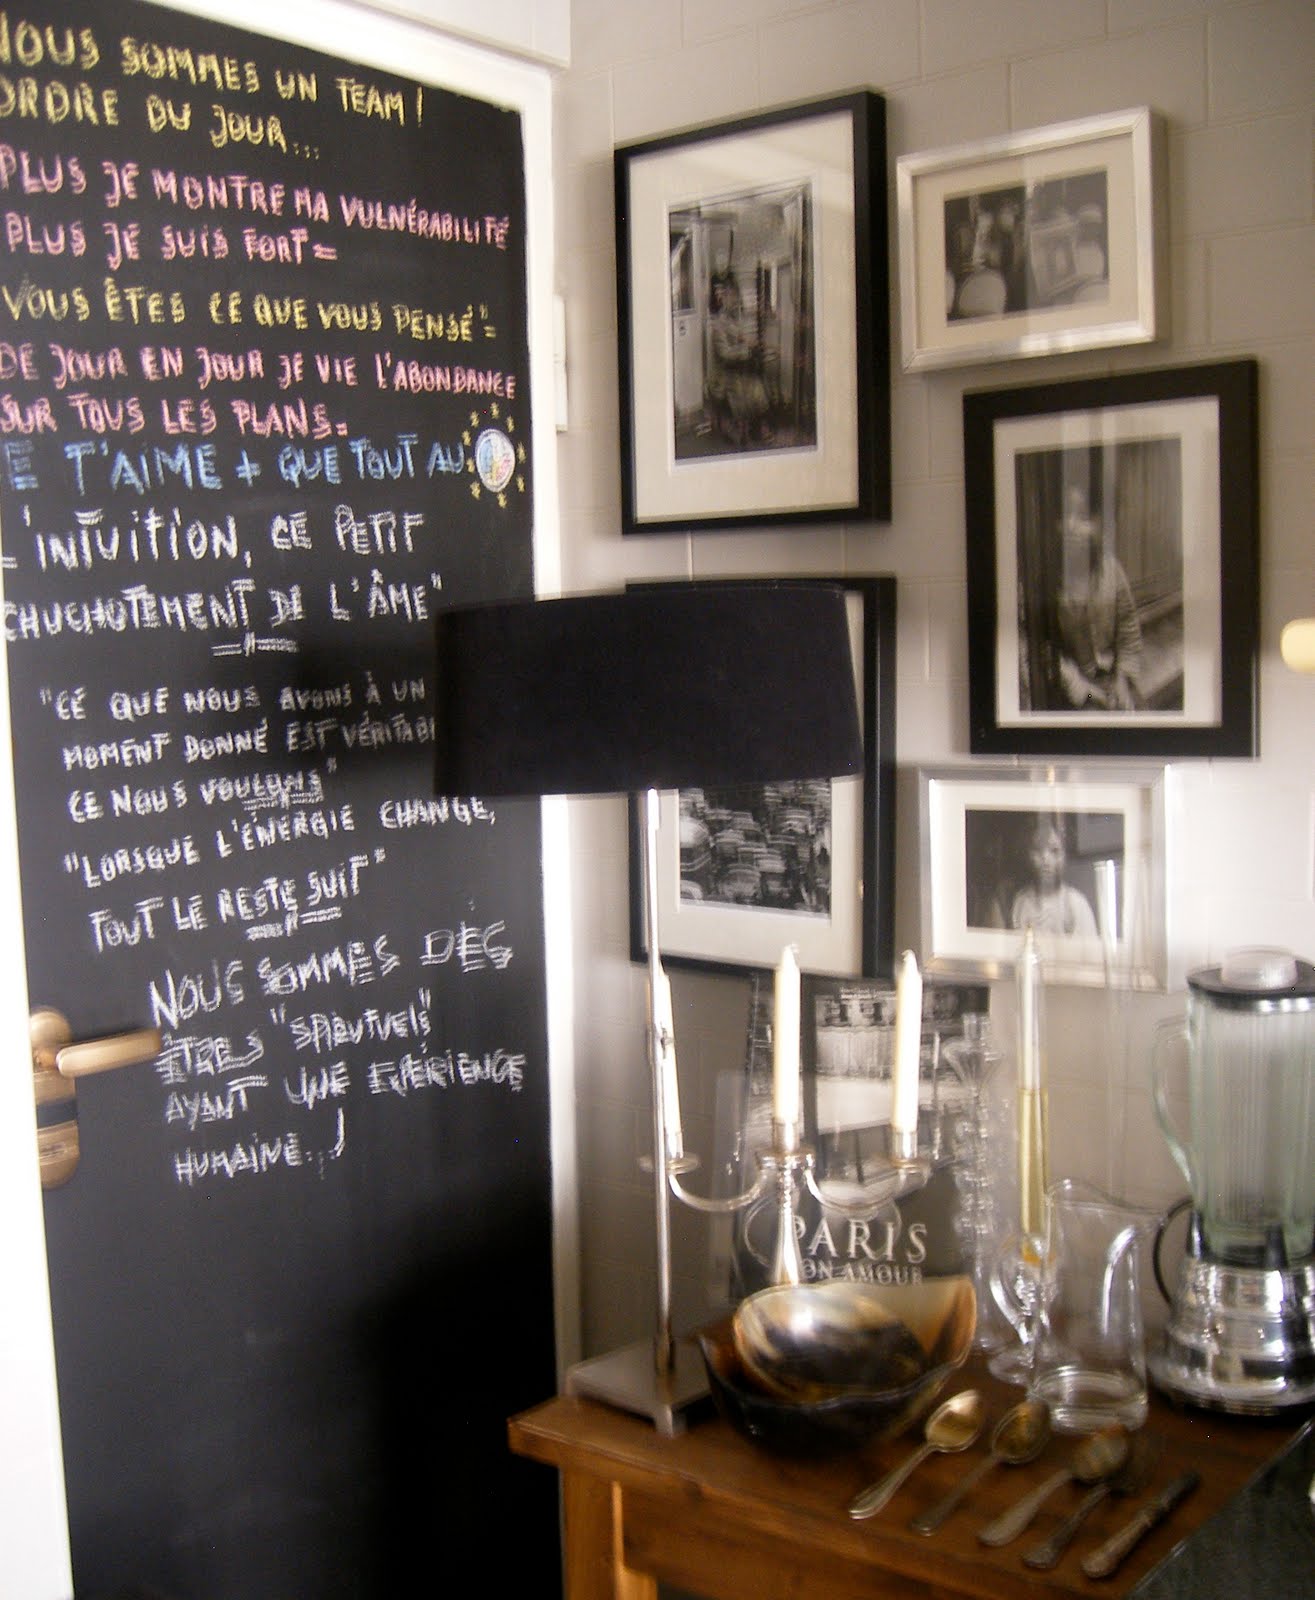 NOUS SOMMES UN TEAM!
ORDRE DU JOUR...
PLUS JE MONTRE MA VULNÉRABILITÉ
PLUS JE SUIS FORT=
VOUS ÊTES CE QUE VOUS PENSÉ"=
DE JOUR EN JOUR JE VIE L'ABONDANCE
SUR TOUS LES PLANS.
E T'AIME + QUE TOUT AU
L'INTUITION, CE PETIT
CHUCHOTEMENT DE L'ÂME"
"CE QUE NOUS AVONS À UN
MOMENT DONNÉ EST VÉRITAB
CE NOUS VOULONS"
"LORSQUE L'ÉNERGIE CHANGE,
TOUT LE RESTE SUIT"
NOUS SOMMES DES
ÊTRES "SPIRITUELS"
AYANT UNE EXPÉRIENCE
HUMAINE..!
PARIS
ON AMOUR